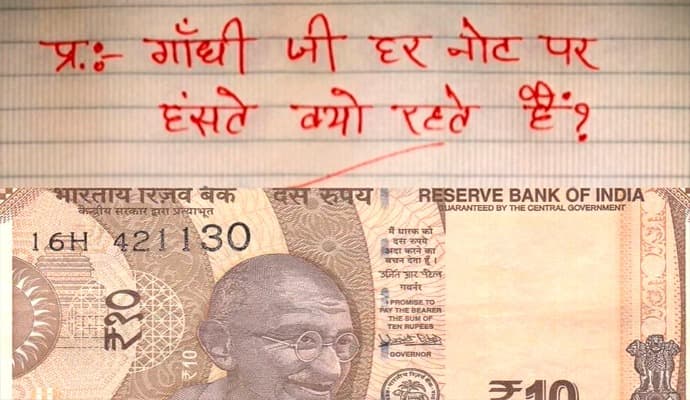 प्र.:- गाँधी जी हर नोट पर
हंसते क्यो रहते हैं?
भारतीय रिज़र्व बैंक
दस रुपये
RESERVE BANK OF INDIA
केन्द्रीय सरकार द्वारा प्रत्याभूत
GUARANTEED BY THE CENTRAL GOVERNMENT
16H 421130
₹10
मैं धारक को
दस रुपये
अदा करने का
वचन देता हूँ।
उर्जित आर. पटेल
गवर्नर
I PROMISE TO
PAY THE BEARER
THE SUM OF
TEN RUPEES
GOVERNOR
10
₹10